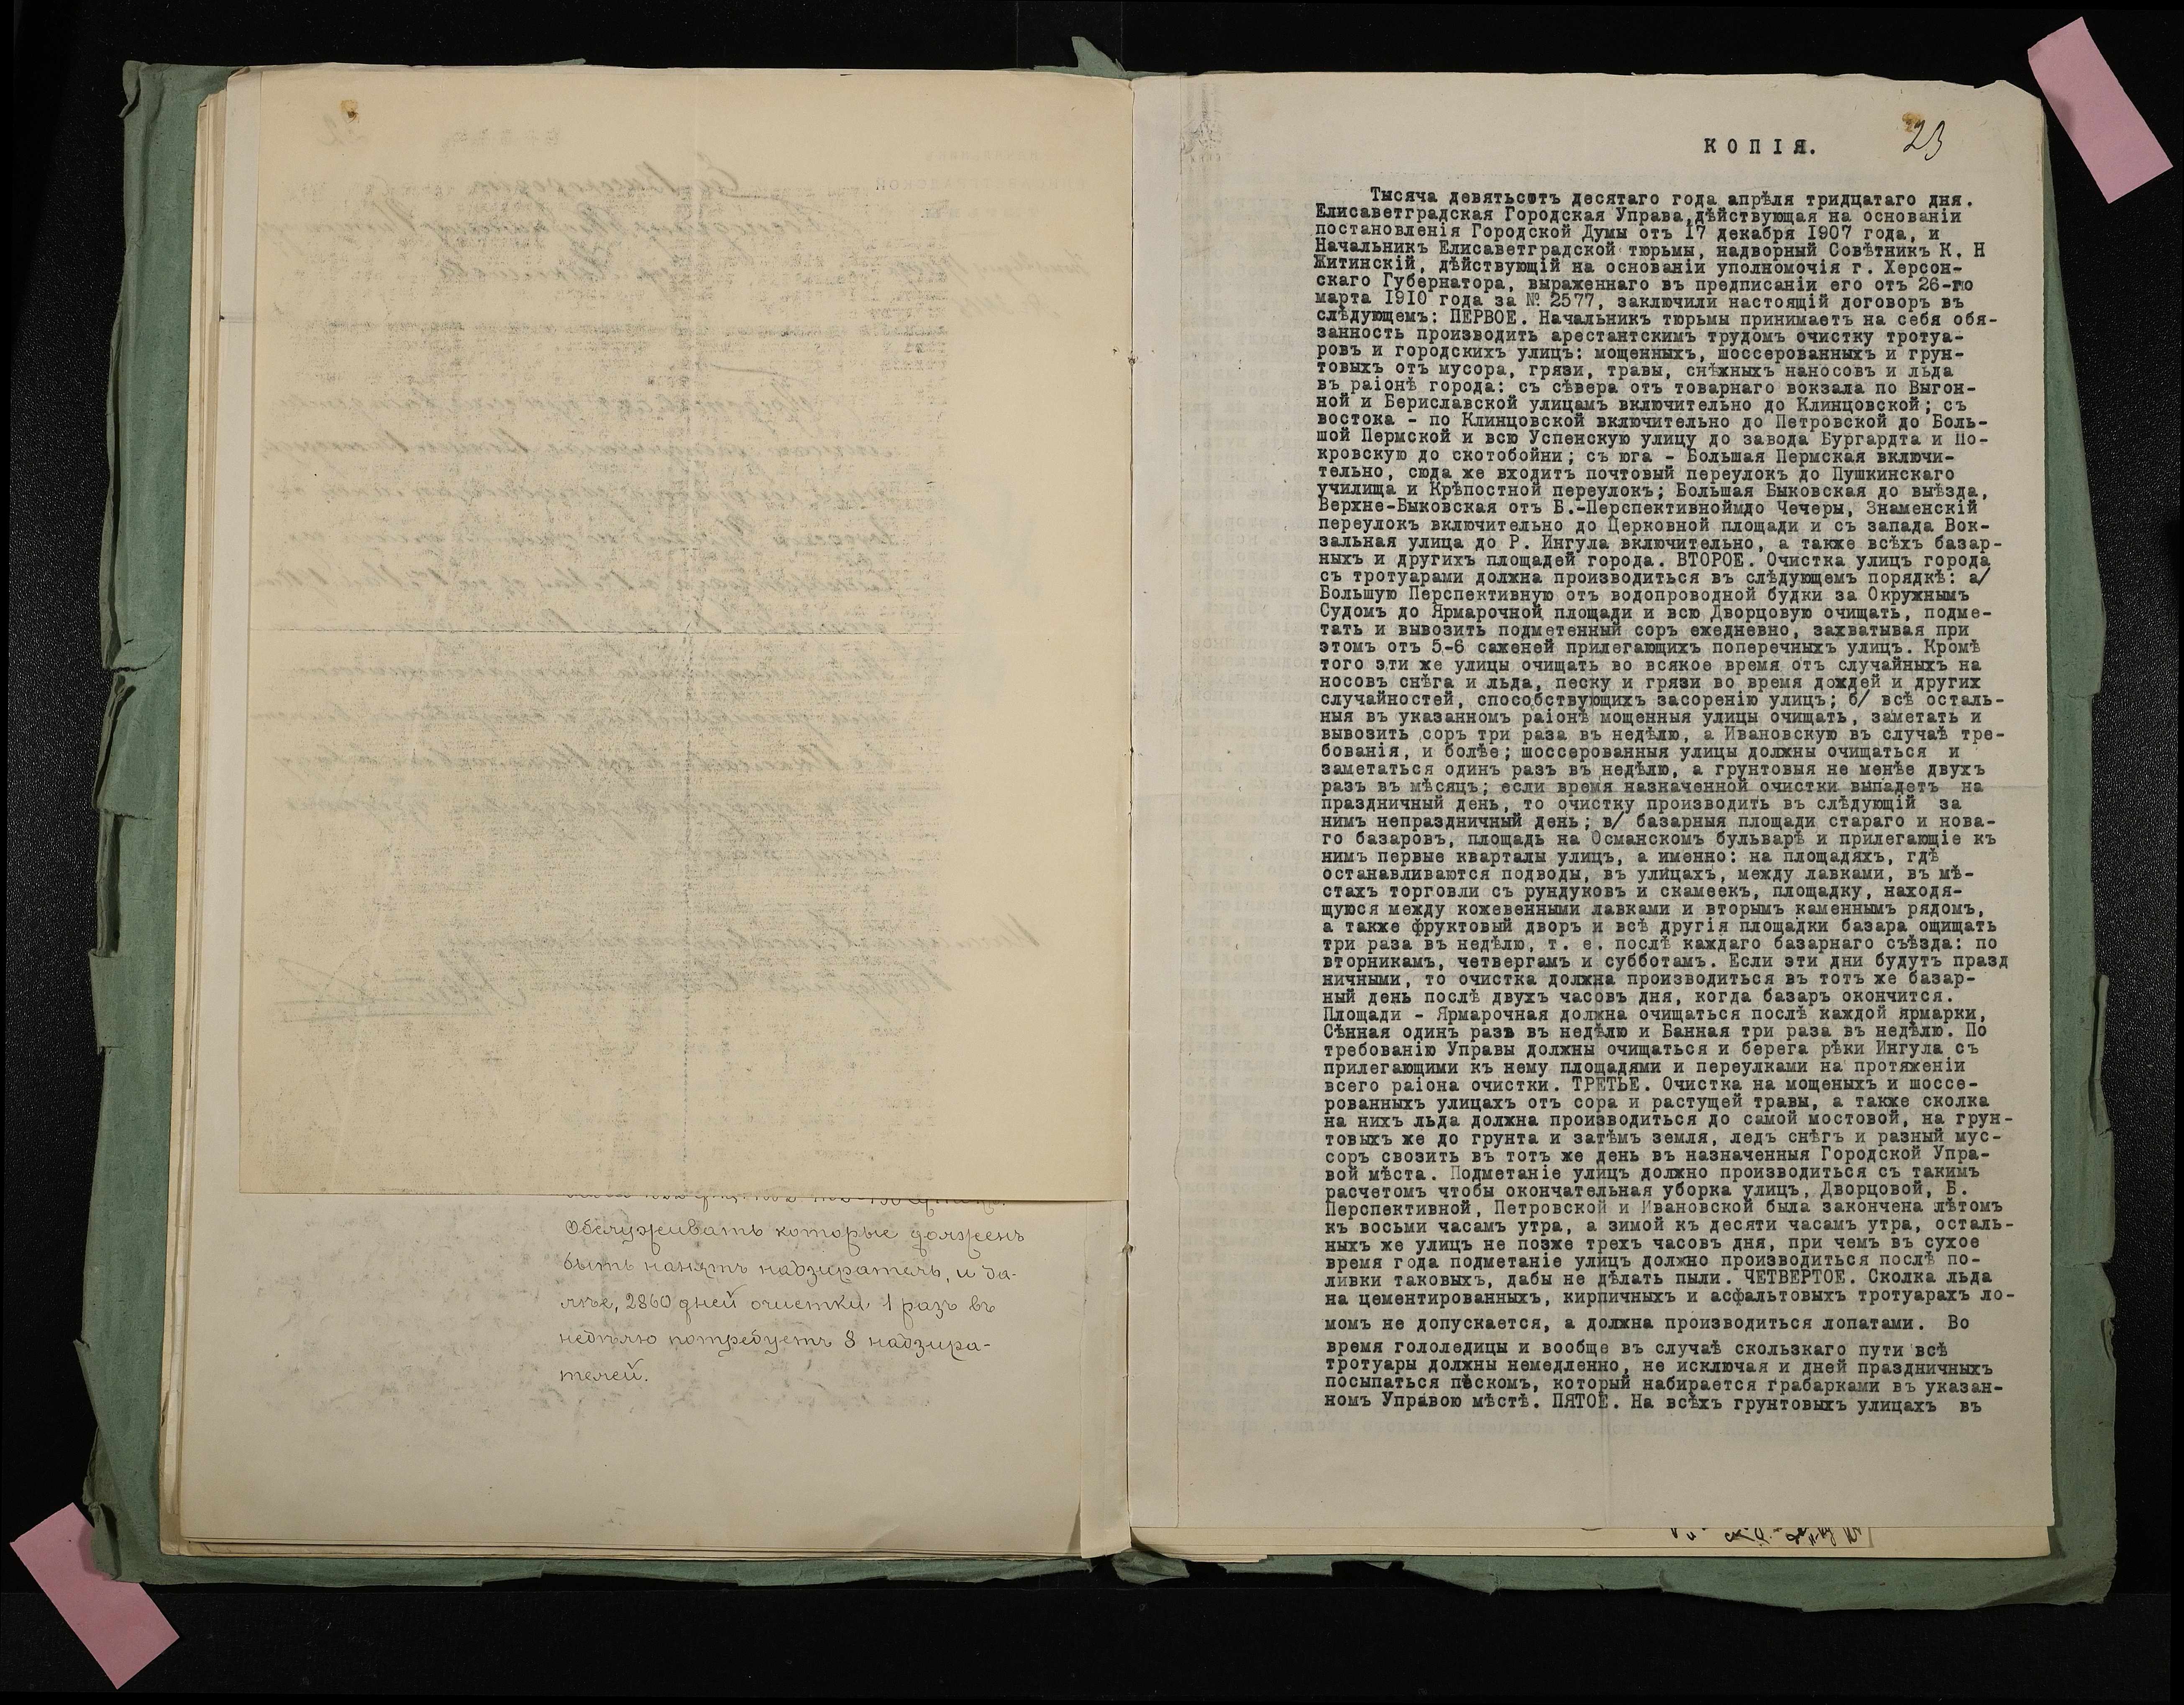 Обслуживать которые долженъ
быть нанятъ надзиратель, и да-
лѣе, 2860 дней очистки 1 разъ въ
недѣлю потребуетъ 8 надзира-
телей.
23
КОПІЯ.
Тысяча девятьсотъ десятаго года апрѣля тридцатаго дня.
Елисаветградская Городская Управа,дѣйствующая на основаніи
постановленія Городской Думы отъ 17 декабря 1907 года, и
Начальникъ Елисаветградской тюрьмы, надворный Совѣтникъ К. Н
Житинскій, дѣйствующій на основаніи уполномочія г. Херсон-
скаго Губернатора, выраженнаго въ предписаніи его отъ 26-го
марта 1910 года за № 2577, заключили настоящій договоръ въ
слѣдующемъ: ПЕРВОЕ. Начальникъ тюрьмы принимаетъ на себя обя-
занность производить арестантскимъ трудомъ очистку тротуа-
ровъ и городскихъ улицъ: мощенныхъ, шоссерованныхъ и грун-
товыхъ отъ мусора, грязи, травы, снѣжныхъ наносовъ и льда
въ раіонѣ города: съ сѣвера отъ товарнаго вокзала по Выгон-
ной и Бериславской улицамъ включительно до Клинцовской; съ
востока - по Клинцовской включительно до Петровской до Боль-
шой Пермской и всю Успенскую улицу до завода Бургардта и По-
кровскую до скотобойни; съ юга - Большая Пермская включи-
тельно, сюда же входитъ почтовый переулокъ до Пушкинскаго
училища и Крѣпостной переулокъ; Большая Быковская до выѣзда,
Верхне-Быковская отъ Б.-Перспективноймдо Чечеры, Знаменскій
переулокъ включительно до Церковной площади и съ запада Вок-
зальная улица до Р. Ингула включительно, а также всѣхъ базар-
ныхъ и другихъ площадей города. ВТОРОЕ. Очистка улицъ города
съ тротуарами должна производиться въ слѣдующемъ порядкѣ: а/
Большую Перспективную отъ водопроводной будки за Окружнымъ
Судомъ до Ярмарочной площади и всю Дворцовую очищать, подме-
тать и вывозить подметенный соръ ежедневно, захватывая при
этомъ отъ 5-6 саженей прилегающихъ поперечныхъ улицъ. Кромѣ
того эти же улицы очищать во всякое время отъ случайныхъ на
носовъ снѣга и льда, песку и грязи во время дождей и другихъ
случайностей, способствующихъ засоренію улицъ; б/ всѣ осталь-
ныя въ указанномъ раіонѣ мощенныя улицы очищать, заметать и
вывозить соръ три раза въ недѣлю, а Ивановскую въ случаѣ тре-
бованія, и болѣе; шоссерованныя улицы должны очищаться и
заметаться одинъ разъ въ недѣлю, а грунтовыя не менѣе двухъ
разъ въ мѣсяцъ; если время назначенной очистки выпадетъ на
праздничный день, то очистку производить въ слѣдующій за
нимъ непраздничный день; в/ базарныя площади стараго и нова-
го базаровъ, площадь на Османскомъ бульварѣ и прилегающіе къ
нимъ первые кварталы улицъ, а именно: на площадяхъ, гдѣ
останавливаются подводы, въ улицахъ, между лавками, въ мѣ-
стахъ торговли съ рундуковъ и скамеекъ, площадку, находя-
щуюся между кожевенными лавками и вторымъ каменнымъ рядомъ,
а также фруктовый дворъ и всѣ другія площадки базара ощищать
три раза въ недѣлю, т. е. послѣ каждаго базарнаго съѣзда: по
вторникамъ, четвергамъ и субботамъ. Если эти дни будутъ празд
ничными, то очистка должна производиться въ тотъ же базар-
ный день послѣ двухъ часовъ дня, когда базаръ окончится.
Площади - Ярмарочная должна очищаться послѣ каждой ярмарки,
Сѣнная одинъ разъ въ недѣлю и Банная три раза въ недѣлю. По
требованію Управы должны очищаться и берега рѣки Ингула съ
прилегающими къ нему площадями и переулками на протяженіи
всего раіона очистки. ТРЕТЬЕ. Очистка на мощеныхъ и шоссе-
рованныхъ улицахъ отъ сора и растущей травы, а также сколка
на нихъ льда должна производиться до самой мостовой, на грун-
товыхъ же до грунта и затѣмъ земля, ледъ снѣгъ и разный мус-
соръ свозить въ тотъ же день въ назначенныя Городской Упра-
вой мѣста. Подметаніе улицъ должно производиться съ такимъ
расчетомъ чтобы окончательная уборка улицъ, Дворцовой, Б.
Перспективной, Петровской и Ивановской была закончена лѣтомъ
къ восьми часамъ утра, а зимой къ десяти часамъ утра, осталь-
ныхъ же улицъ не позже трехъ часовъ дня, при чемъ въ сухое
время года подметаніе улицъ должно производиться послѣ по-
ливки таковыхъ, дабы не дѣлать пыли. ЧЕТВЕРТОЕ. Сколка льда
на цементированныхъ, кирпичныхъ и асфальтовыхъ тротуарахъ ло-
момъ не допускается, а должна производиться лопатами. Во
время гололедицы и вообще въ случаѣ скользкаго пути всѣ
тротуары должны немедленно, не исключая и дней праздничныхъ
посыпаться пѣскомъ, который набирается грабарками въ указан-
номъ Управою мѣстѣ. ПЯТОЕ. На всѣхъ грунтовыхъ улицахъ въ